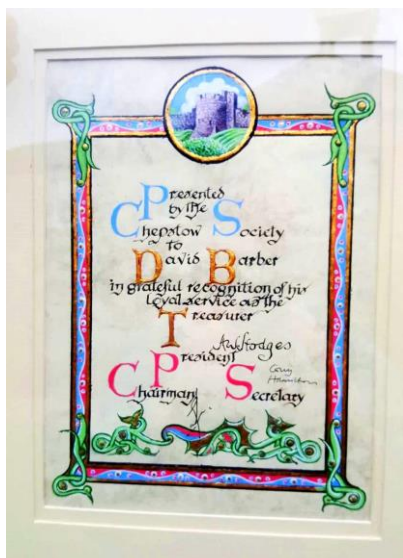 Presented
by the
Chepstow Society
to
David Barber
in grateful recognition of his
loyal service as the
Treasurer
President
Chairman Secretary